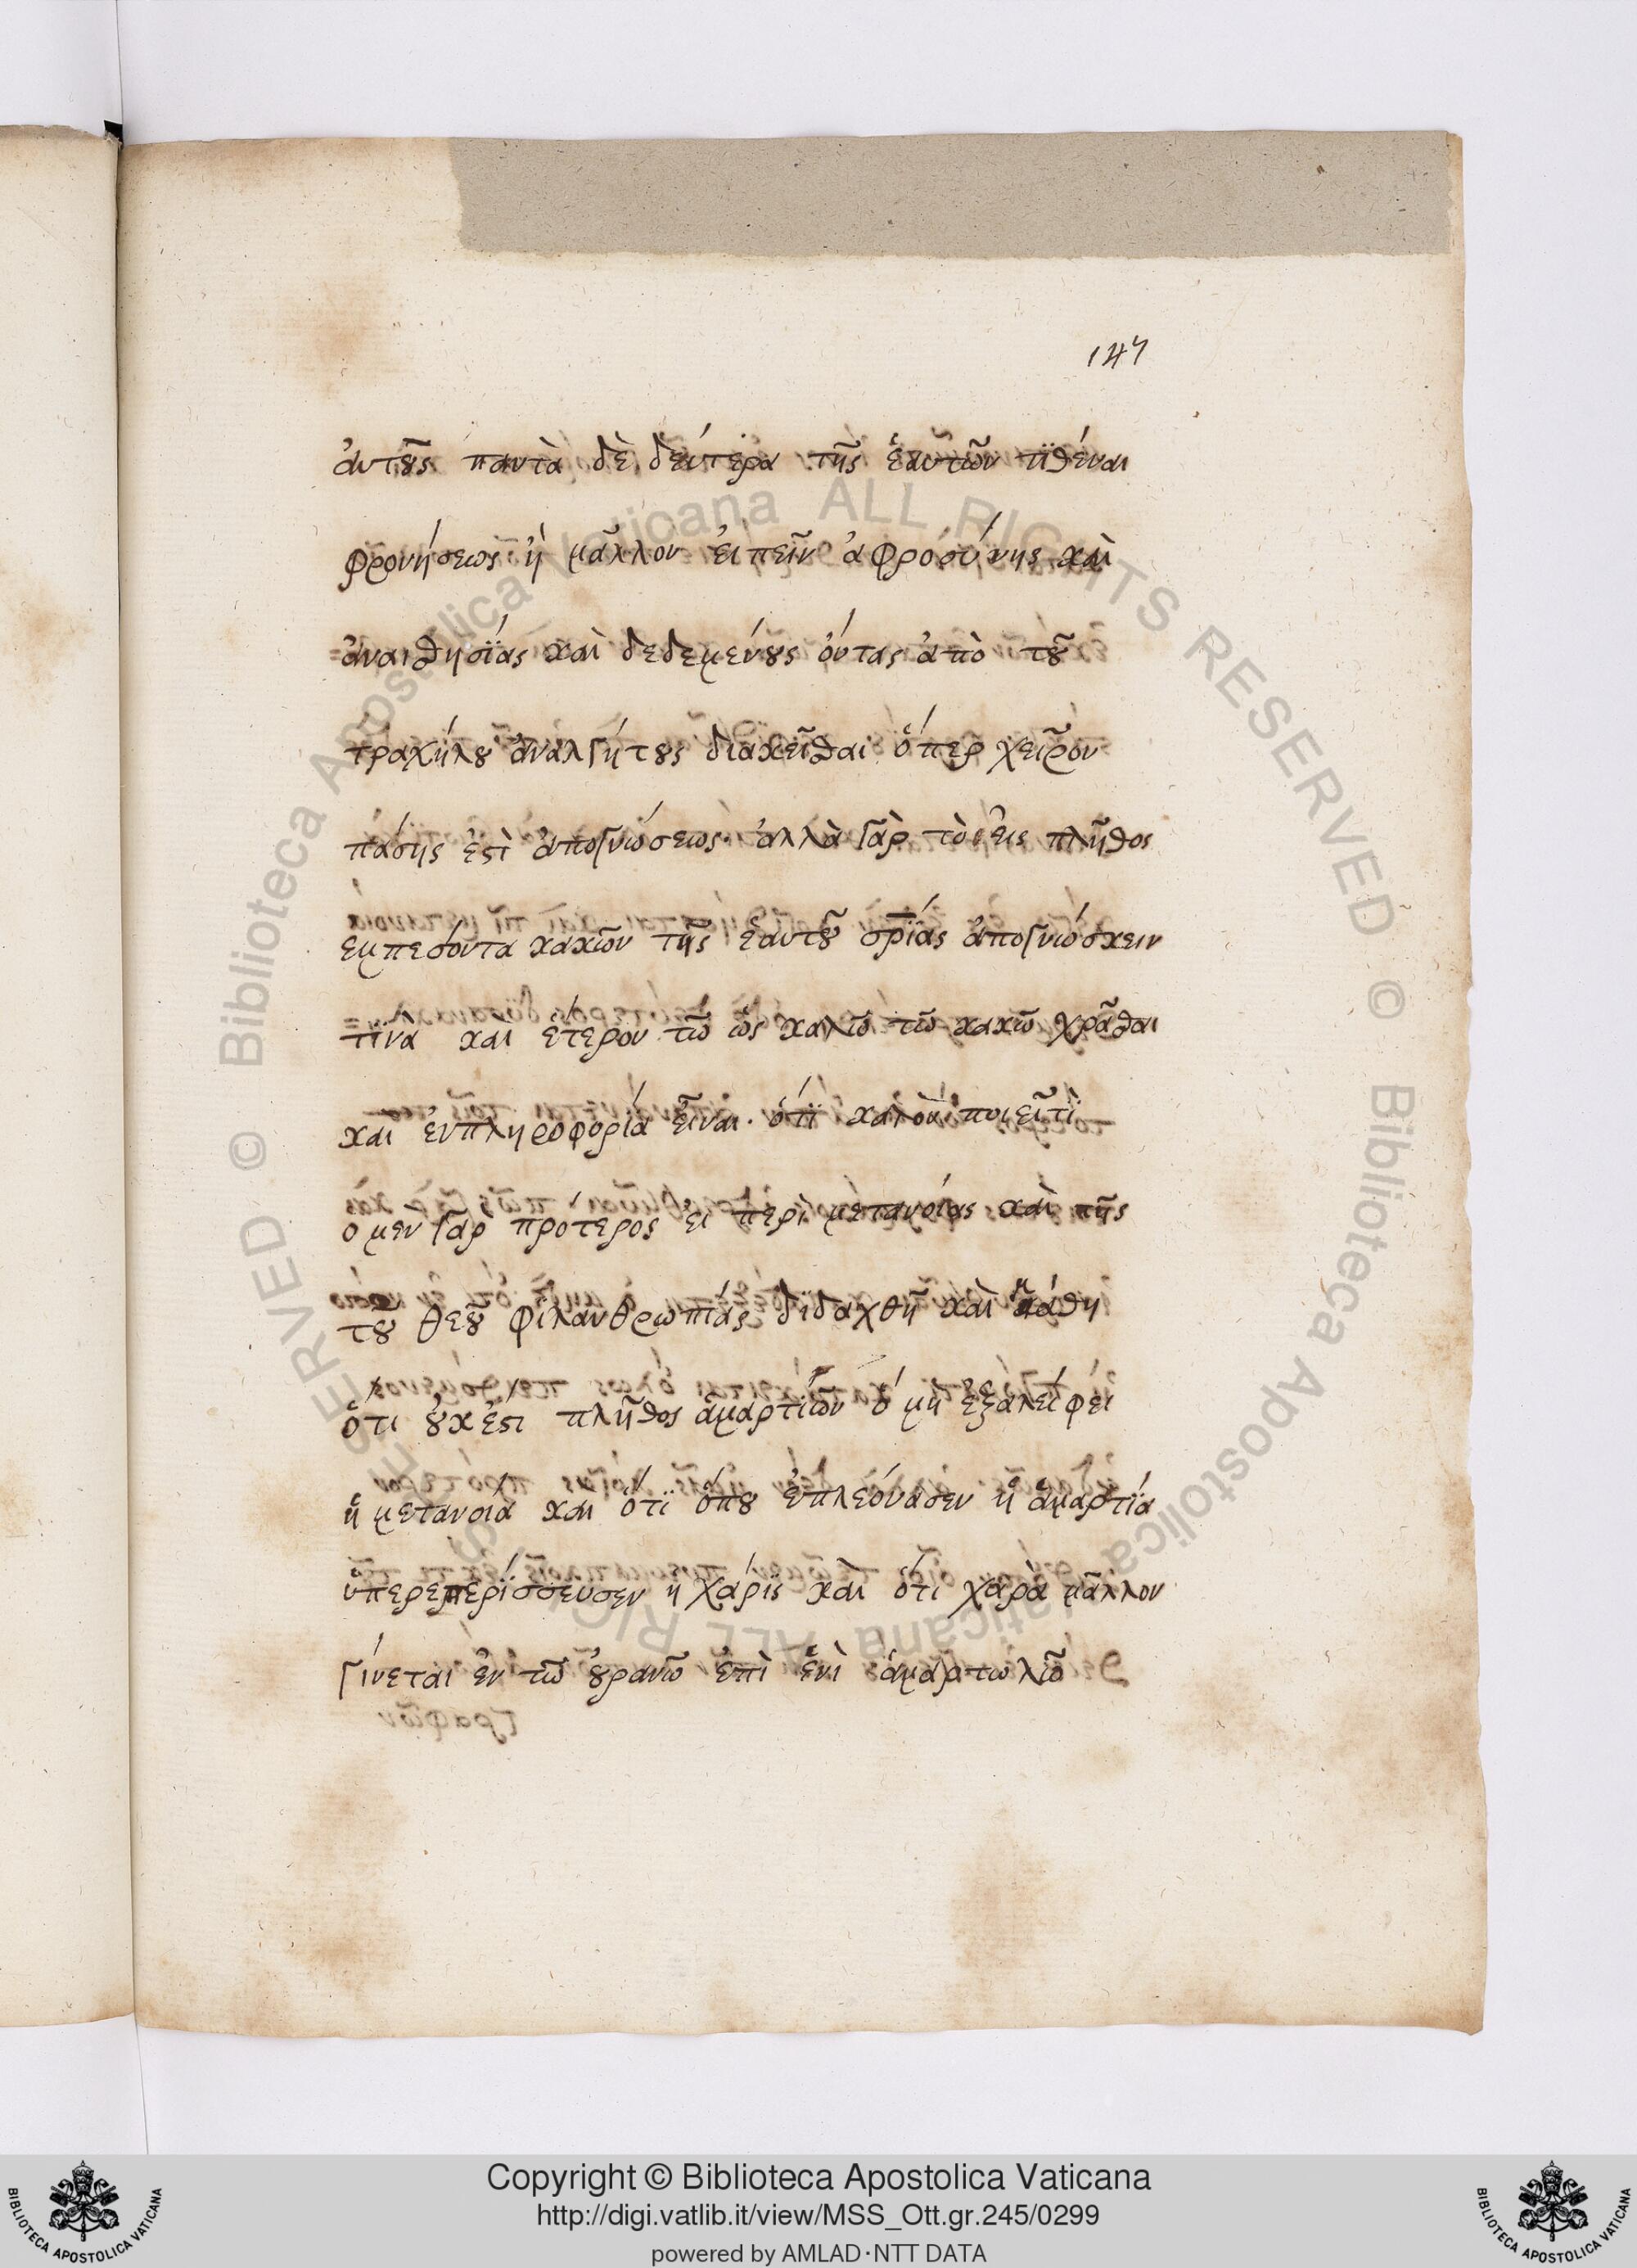 147
ἀυτοῦς παντὰ δὲ δέυτερα τῆς ἑαυτῶν τϊθέναι
φρονήσεως ἢ μᾶλλον ἐιπεῖν ἀφροσύνης καὶ
ἀναισθησϊάς καὶ δεδεμένους ὄντας ἀπὸ τοῦ
τραχήλου ἀναλγήτους διακεῖσθαι ὅπερ χεῖρον
πάσης ἐστὶ ἀπογνώσεως· ἀλλὰ γὰρ τὸ ἐις πλῆθος
εμπεσόντα κακῶν τῆς ἑαυτοῦ σρϊάς ἀπογνώσκειν
τϊνα καὶ ἕτερον τῶ ὡς καλῶ τῶ κακῶ χρᾶσθαι
καὶ ἐνπληροφορία εἶναι· ὅτϊ καλὸν ποιεῖτϊ
ο μὲν γὰρ πρότερος ἐι περὶ μετανοίας καὶ τῆς
του θεοῦ φιλανθρωπιάς διδαχθῆ καὶ μάθη
ὅτι οὐκ ἐστι πλῆθος ἁμαρτιῶν ὁ μὴ ἐξαλείφει
ἡ μετανοιὰ καὶ ὅτϊ ὁπου ἐπλεόνασεν ἡ ἁμαρτϊα
ὑπερεπερίσσευσεν η χάρϊς καὶ ὅτι χαρὰ μᾶλλον
γίνεται ἐν τῶ οὐρανῶ ἐπὶ ἑνὶ ἁμαρτωλῶ
© Biblioteca Apostolica Vaticana ALL RIGHTS RESERVED © Biblioteca Apostolica Vaticana ALL RIGHTS RESERVED
Copyright © Biblioteca Apostolica Vaticana
http://digi.vatlib.it/view/MSS_Ott.gr.245/0299
powered by AMLAD·NTT DATA
BIBLIOTECA APOSTOLICA VATICANA
BIBLIOTECA APOSTOLICA VATICANA